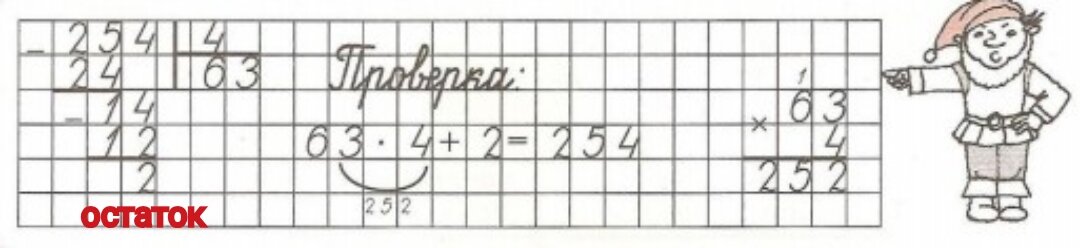 _ 254 | 4
24 | 63
_ 14
12
2
остаток
Проверка:
63 · 4 + 2 = 254
252
1
× 63
4
252